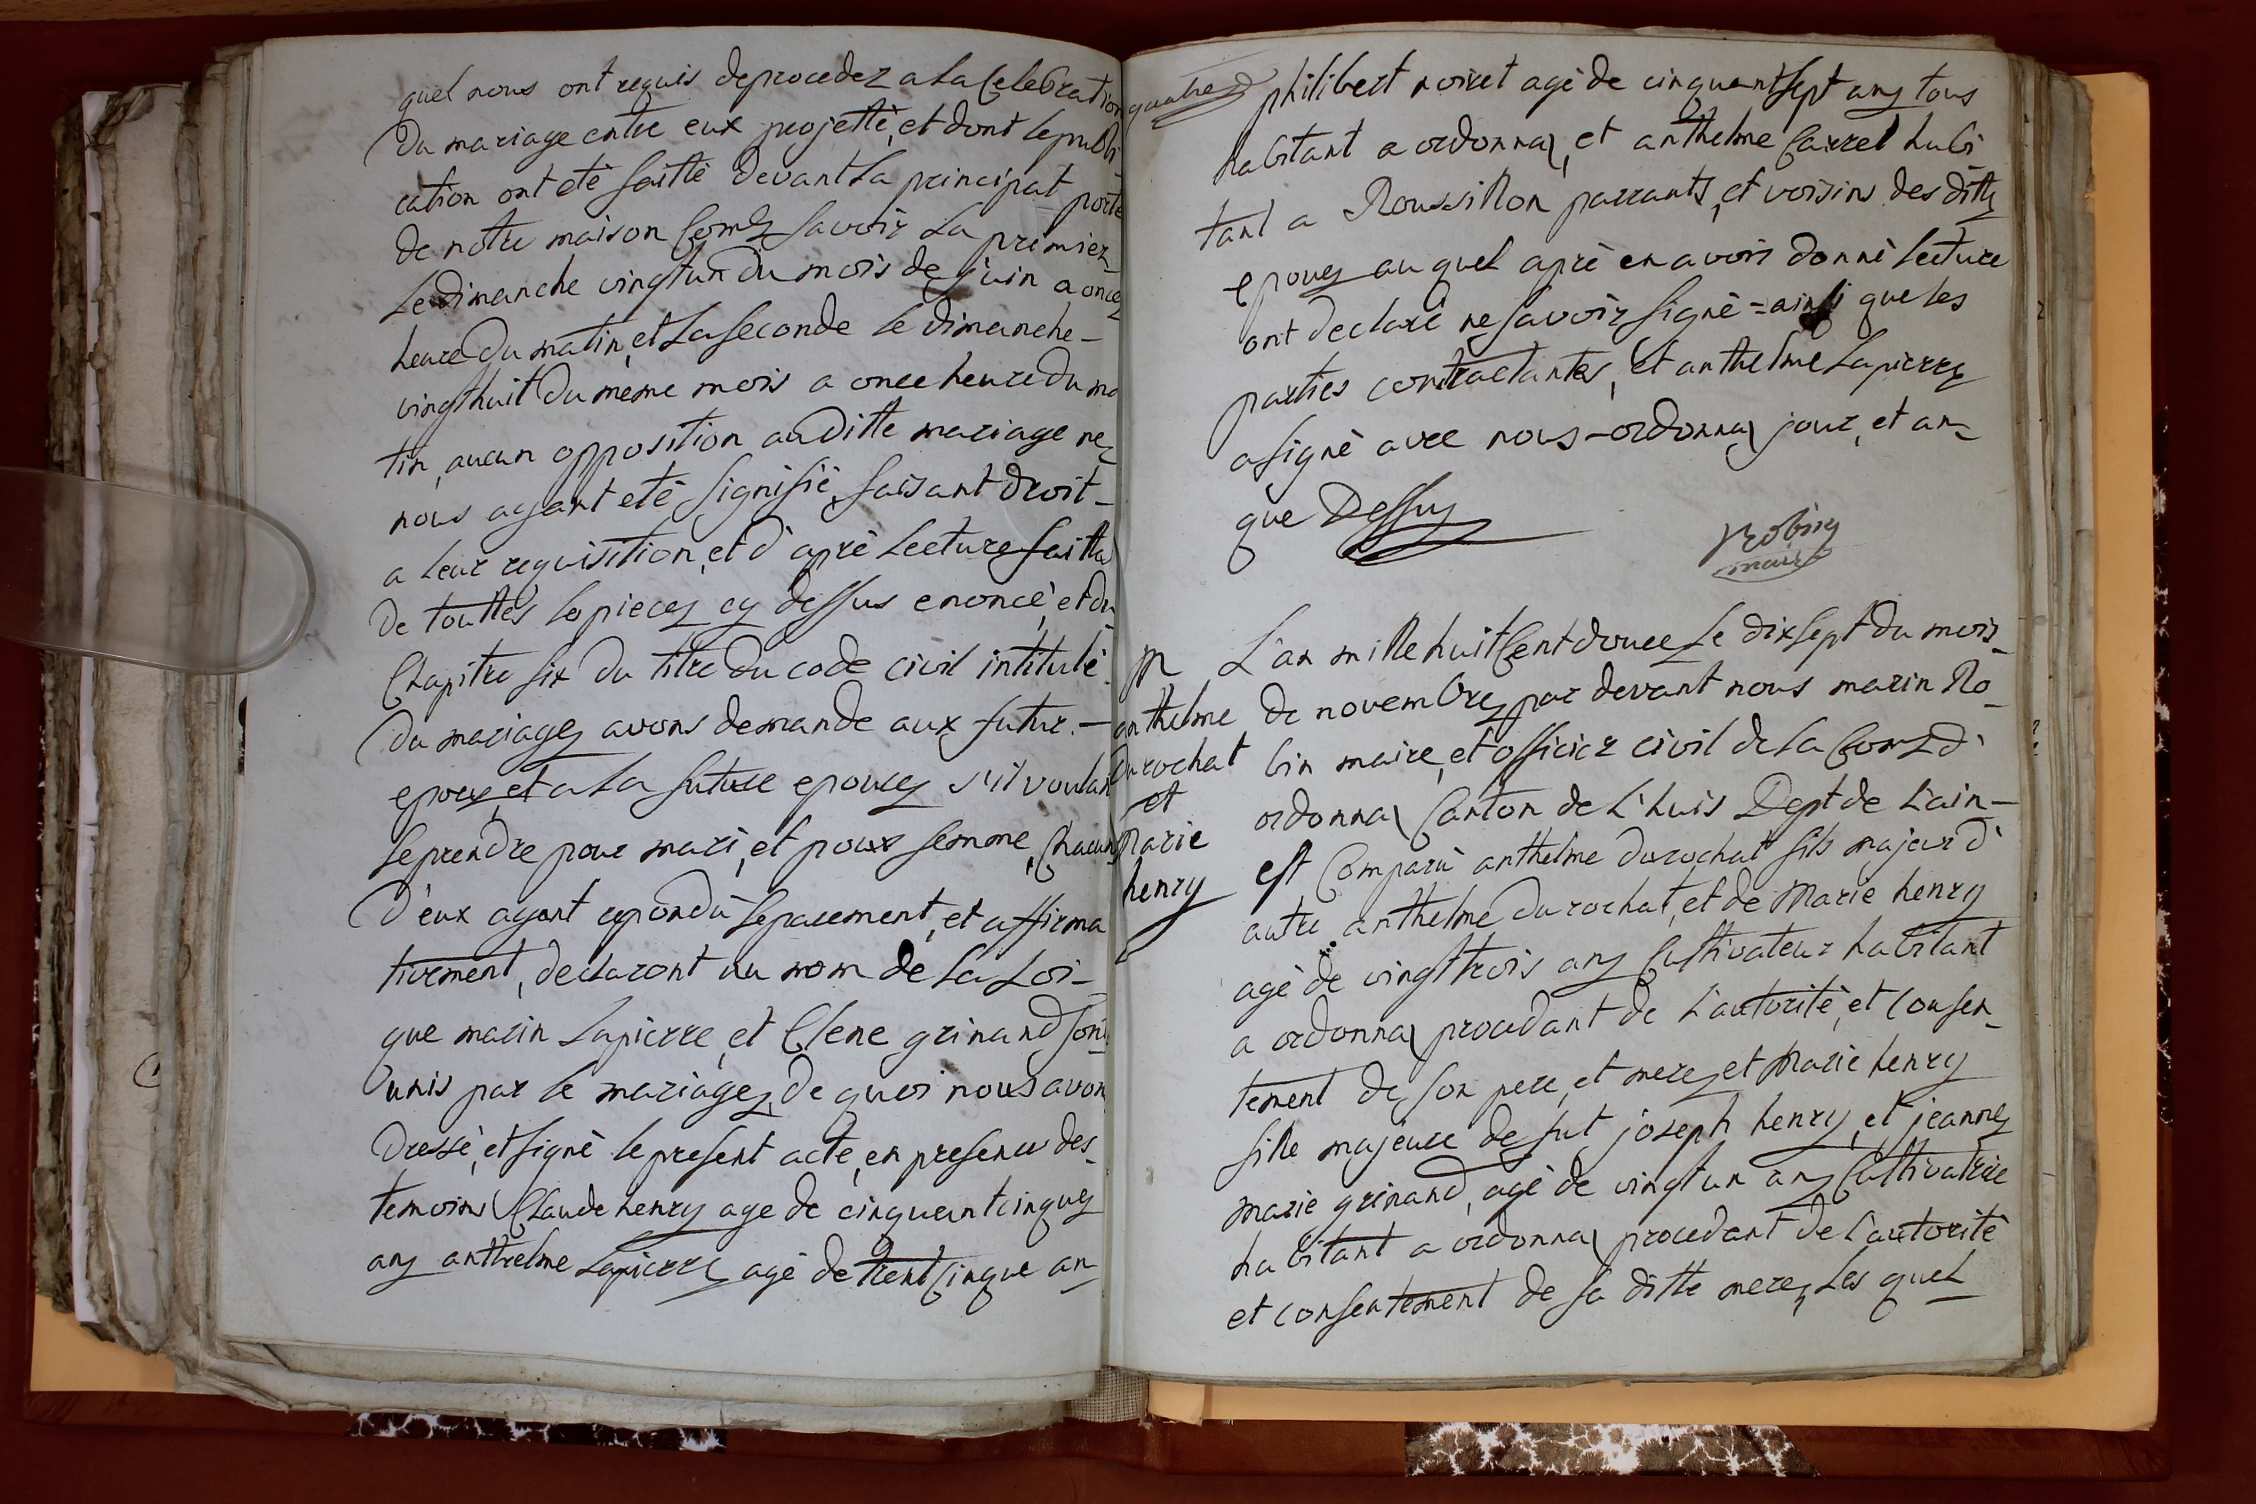 quel nous ont requis deproceder a la Celebration
Du mariage entre eux projetté, et dont lepubli
cation ont eté faitte devant La principat porte
de notre maison Come Savoir La premier
Le dimanche vingt un du mois de juin a once
heure Du matin, et La Seconde le dimanche
vingt huit Du meme mois a once heure Du ma
tin, aucun opposition au Ditte mariage ne
nous ayant eté Signifié, faisant droit
a leur requisition, et d'aprè Lecture faitte
De touttes le pieces cy dessus enoncé, et du
Chapitre Six Du titre Du code civil intitulé
Du mariage avons demande aux futur
epoux, et a La future epouce s'il voulai
Se prendre pour mari, et pour femme, Chacun
D'eux ayant repondù Separement, et affirma
tivement, declaront au nom de La Loi
que marin Lapierre, et Clene grinand Son
unis par le mariage, De quoi nous avon
Dressé, et Signé le present acte, en presence des
temoins Claude henry age de cinquent cinque
ans anthelme Lapierre agé de trent Cinque an
quatre
philibert noiret agé de cinquant sept ans tous
habitant a ordonnas, et anthelme Carrel habi
tant a Roussillon parrants, et voisins des ditte
epoues au quel aprè en avoir donné Lecture
ont declaré ne Savoir Signé = ainsi que les
parties contractantes, et anthelme Lapierre
a Signé avec nous ordonnas jour, et an
que Dessus
Robin
maire
M
anthelme
Durochat
et
Marie
henry
L'an mille huit Cent douce Le dix Sept du mois
de novembre par devant nous marin Ro
bin maire, et officier civil de La Come d'
ordonnas Canton de L'huis Dept de L'ain
est Comparù anthelme durochat fils majeur d'
autre anthelme Durochat, et de Marie henry
agé de vingt trois ans Cultivateur habitant
a ordonnas procedant de L'autorité, et Consen
tement de Son pere, et mere et Marie henry
fille majeure de fut joseph henry, et jeanne
Marie grinand, agé de vingt un ans Cultivatrice
habitant a ordonnas procedant de L'autorité
et Consentement de Sa ditte mere, Les quel